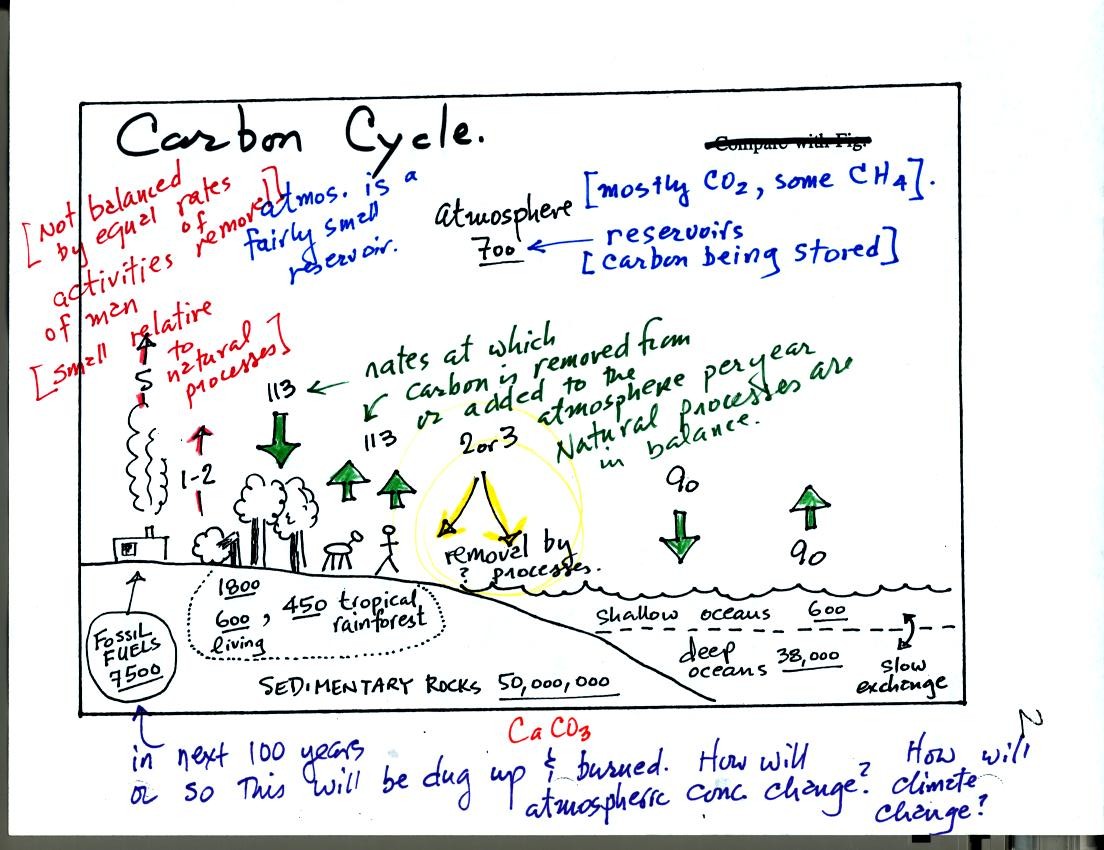 Carbon Cycle.
Compare with Fig.
[Not balanced
by equal rates
of
removal]
activities
of man
[small relative
to
natural
processes]
atmos. is a
fairly small
reservoir.
atmosphere [mostly CO2, some CH4].
700 ← reservoirs
[carbon being stored]
5
1-2
113 ← rates at which
carbon is removed from
or added to the
atmosphere per year
Natural processes are
in balance.
113
2 or 3
removal by
? processes.
90
90
1800
600, 450 tropical
rainforest
living
FOSSIL
FUELS
7500
SEDIMENTARY ROCKS 50,000,000
shallow oceans 600
deep
oceans 38,000
slow
exchange
CaCO3
in next 100 years
or so This will be dug up & burned. How will
atmospheric conc. change?
How will
climate
change?
2